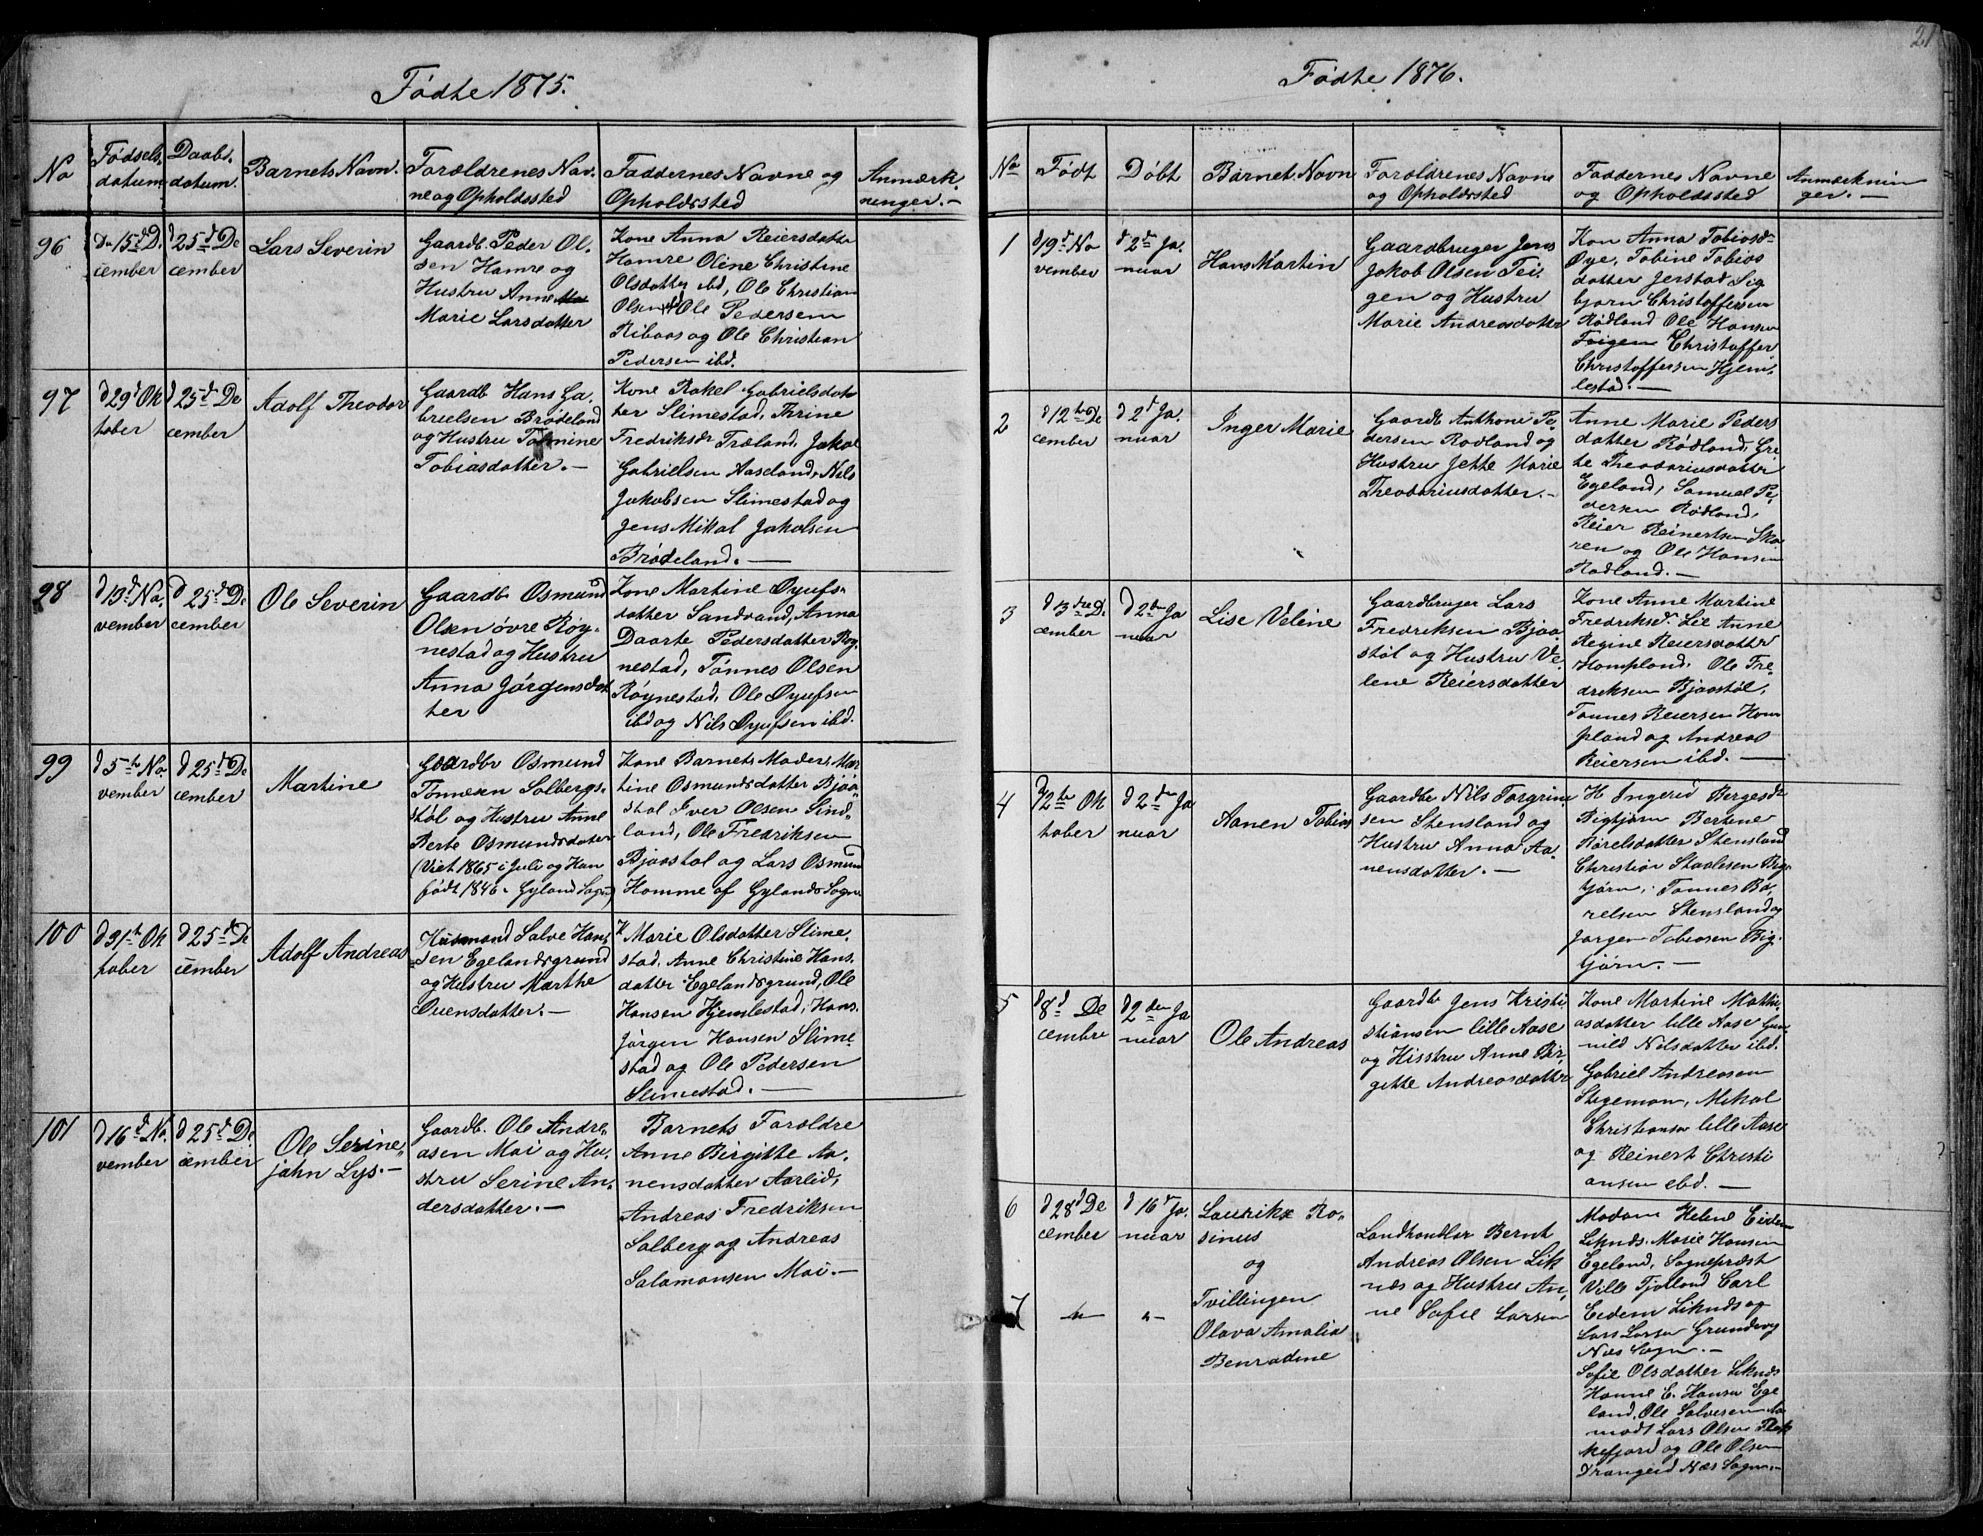 Fødte 1875.
No
Fødsels datum
Daabs datum.
Barnets Navn.
Forældrenes Nav-
ne og Opholdssted
Faddernes Navne og
Opholdssted
Anmærk-
ninger. -
96
Den 15de De
cember
d 25d De
cember
Lars Severin
Gaardb. Peder Ol-
sen Hamre og
Hustru Anne
Marie Larsdatter
Kone Anna Reiersdatter
Hamre Oline Christine
Olsdatter ibd, Ole Christian
Olsen ibd Ole Pedersen
Ribaas og Ole Christian
Pedersen ibd.
97
d 29d Ok
tober
d 25d De
cember
Adolf Theodor
Gaardb Hans Ga-
brielsen Brødeland
og Hustru Tomine
Tobiasdatter. -
Kone Rakel Gabrielsdat
ter Slimestad, Thrine
Fredriksdr Træland, Jakob
Gabrielsen Aaseland, Nils
Jakobsen Slimestad og
Jens Mikal Jakobsen
Brødeland. -
98
d 13d No-
vember
d 25d De
cember
Ole Severin
Gaardbr Osmund
Olsen øvre Røy-
nestad og Hustru
Anna Jørgensdat
ter
Kone Martine Øyufs-
datter Sandvand, Anna
Daarte Pedersdatter Røy-
nestad, Tønnes Olsen
Røynestad, Ole Øyufsen
ibd og Nils Øyufsen ibd.
99
d 5te No
vember
d 25d De
cember
Martine
Gaardbr Osmund
Tønnesen Solbergs-
støl og Hustru Anne
Berte Osmundsdatter
(Viet 1865 i Juli og Han
født 1846 - Gyland Sogn)
Kone Barnets Moders Mar
tine Osmundsdatter Bjaa-
støl Iver Olsen Sind-
land, Ole Fredriksen
Bjaastøl og Lars Osmund
Homme af Gylands Sogn
100
d 31te Ok
tober
d 25d De
cember
Adolf Andreas
Husmand Salve Han-
sen Egelandsgrund
og Hustru Marthe
Ovensdatter. -
K Marie Olsdatter Slime-
stad, Anne Christine Hans-
datter Egelandsgrund, Ole
Hansen Hjemlestad, Hans
Jørgen Hansen Slime-
stad og Ole Pedersen
Slimestad. -
101
d 16d No.
vember
d 25d De
cember
Ole Serine-
jahn Lys. -
Gaardb. Ole Andre-
asen Moi og Hu-
stru Serine An-
dersdatter. -
Barnets Forældre
Anne Birgitte Aa-
nensdatter Aarlid,
Andreas Fredriksen
Salberg og Andreas
Salamonsen Moi. -
21
Fødte 1876.
No
Født
Døbt
Barnet Navn
Forældrenes Navne
og Opholdssted
Faddernes Navne
og Opholdssted
Anmærknin
ger. -
1
d 19d No
vember
d 2den Ja.
nuar
Hans Martin
Gaardbruger Jens
Jakob Olsen Fei-
gen og Hustru
Marie Andreasdatter
Kon Anna Tobiasdr
Øye, Tobine Tobias
datter Jerstad Sig
bjørn Christoffersen
Rødland Ole Hansen
Feigen Christoffer
Christoffersen Hjem-
lestad. -
2
d 12te De
cember
d 2d Ja.
nuar
Inger Marie
Gaardb Anthoni Pe-
dersen Rødland og
Hustru Jette Marie
Theodoriusdatter. -
Anne Marie Peders
datter Rødland, Gre
te Theodoriusdatter
Egeland, Samuel Pe-
dersen Rødland,
Reier Reinertsen Ska-
ren og Ole Hansen
Rødland. -
3
d 13de De
cember
d 2den Ja
nuar
Lise Veline
Gaardbruger Lars
Fredriksen Bjaa-
støl og Hustru Ve-
lene Reiersdatter
Kone Anne Martine
Fredriksdr. Lie Anne
Regine Reiersdatter
Hompland, Ole Fre-
driksen Bjaastøl,
Tonnes Reiersen Hom
pland og Andreas
Reiersen ibd. -
4
d 12te Ok
tober
d 2den Ja
nuar
Aanen Tobias
Gaardbr Nils Torgrim
sen Stensland og
Hustru Anna Aa-
nensdatter. -
K Ingerid Bergesdr
Bigtjørn Bertene
Børelsdatter Stensland
Christian Staalesen Big-
tjørn, Tonnes Bø-
relsen Stensland og
Jørgen Tobiasen Big-
tjørn. -
5
d 8d De
cembre
d 2den Ja
nuar
Ole Andreas
Gaardbr Jens Kristi
stiansen lille Aase
og Hisstru Anne Bir-
gitte Andreasdatter
Kone Martine Mathi-
asdatter lille Aase Gun
nild Nilsdatter ibd.
Gabriel Andreasen
Stegemon, Mikal
Christiansen lille Aase
og Reinert Christi
ansen ibd. -
6
d 28d De
cember
d 16d Ja.
nuar
Laurike Ro-
sinus
og
Landhandler Bernt
Andreas Olsen Lik
næs og Hustru An-
ne Sofie Larsen
Madam Helene Eidem
Liknds, Marie Hansen
Egeland, Sognepræst
Ville Tjolland Carl
Eidem Liknds og
Lars Larsen Grundevog
Næs Sogn. -
7
- " -
" -
Tvillingen
Olava Amalia
Benradine
Sofie Olsdatter Liknds
Hanne E. Hansen Ege
land, Ole Salvesen Aa
modt Lars Olsen Flek
kefjord og Ole Olsen
Drangeid Næs Sogn. -